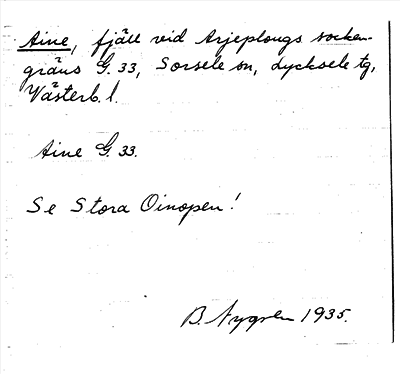 Aine, fjäll vid Arjeplougs socken-
gräns G. 33, Sorsele sn, Lycksele tg,
Västerb. l.
Aine G. 33.
Se Stora Oinopen!
B. Nygren 1935.